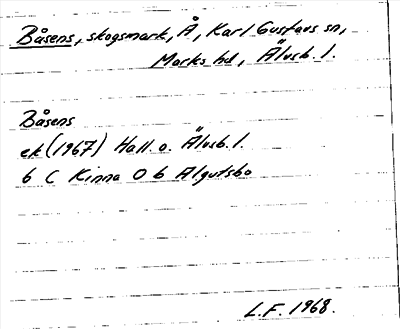 Båsens, skogsmark, Å, Karl Gustavs sn,
Marks hd, Älvsb. l.
Båsens
ek (1967) Hall. o. Älvsb. l.
6 C Kinna 0 b Algutsbo
L.F. 1968.